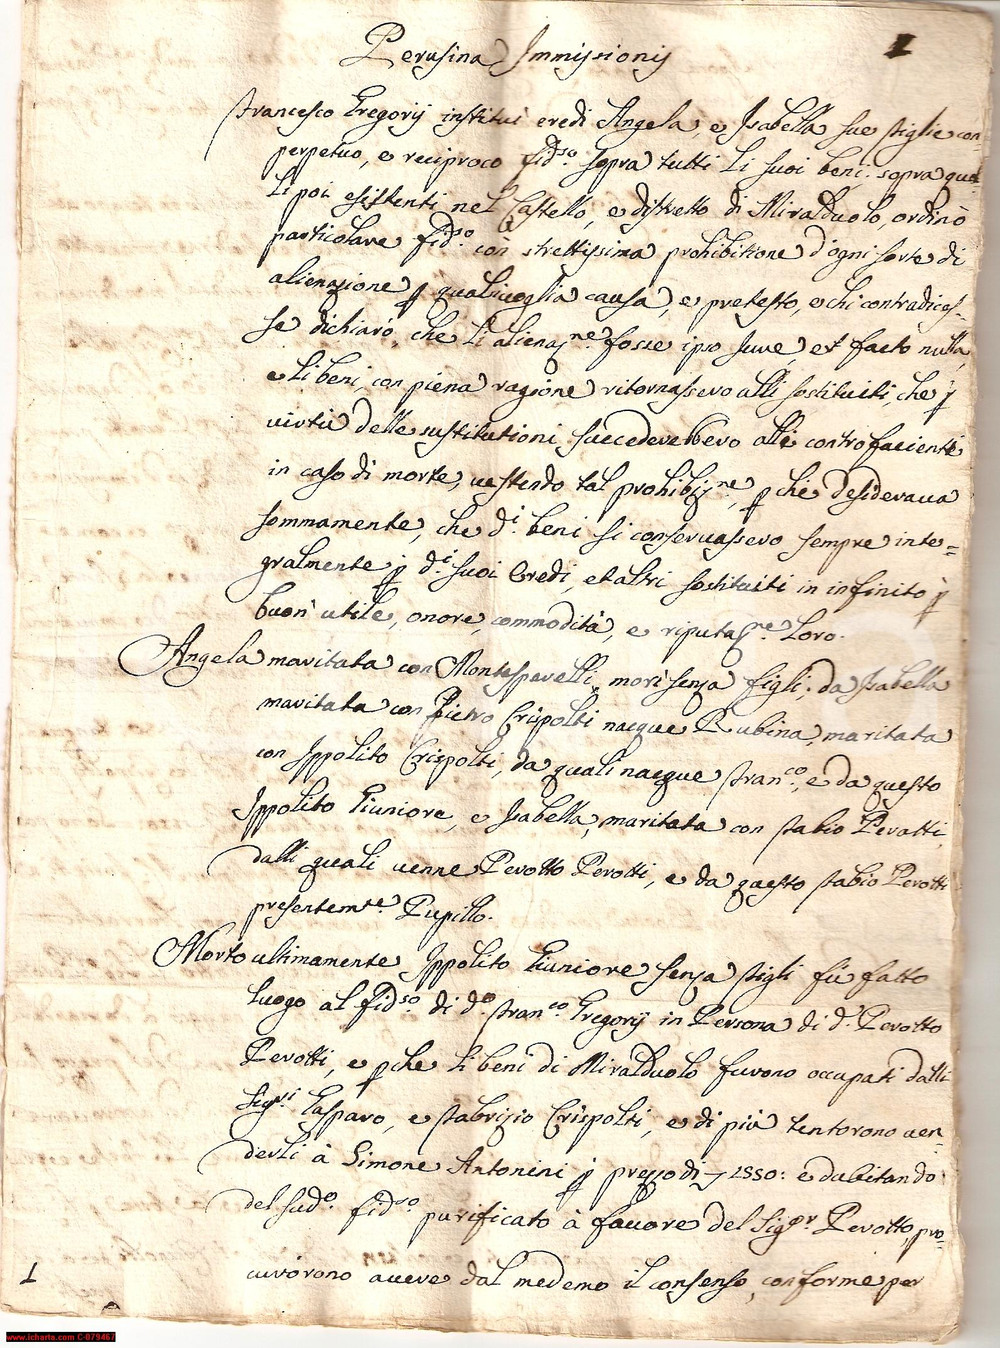 1
Perusina Immissionis
Francesco Gregorij instituì eredi Angela, e Isabella sue figlie con
perpetuo, e reciproco fid.so sopra tutti li suoi beni. sopra qua
li poi esistenti nel Castello, e distretto di Miralduolo, ordinò
particolare fid.so con strettissima prohibitione d'ogni sorte di
alienazione p qualsivoglia causa, e pretesto, e chi contradices-
se dichiarò, che li alienaz.ne fosse ipso Jure, et facto nulla,
e li beni, con piena ragione ritornassero alli sostituiti, che p
virtù delle sustitutioni succederebbero alli controfacienti
in caso di morte, uestendo tal prohibiz.ne, p che desideraua
sommamente, che d.i beni si conseruassero sempre inte=
gralmente p d.i suoi Eredi, et altri sostituiti in infinito p
buon' utile, onore, commodità, e riputaz.ne Loro.
Angela maritata con Montesperelli, morì senza figli. da Isabella
maritata con Pietro Crispolti nacque Rubina, maritata
con Ippolito Crispolti, da quali nacque Fran.co, e da questo
Ippolito Giuniore, e Isabella, maritata con Fabio Perotti,
dalli quali uenne Perotto Perotti, e da questo Fabio Perotti
presentem.te Pupillo.
Morto ultimamente Ippolito Giuniore senza figli fù fatto
luogo al fid.so di d.o Fran.co Gregorij in Persona di d.o Perotto
Perotti, e p che li beni di Miralduolo furono occupati dalli
Sig.ri Gasparo, e Fabrizio Crispolti, e di più tentorono uen-
derli à Simone Antonini p prezzo di 1550: e dubitando
del sud.o fid.so purificato à fauore del Sig.r Perotto, pro-
curorono auere dal medemo il consenso, conforme per
1
www.icharta.com C-079467